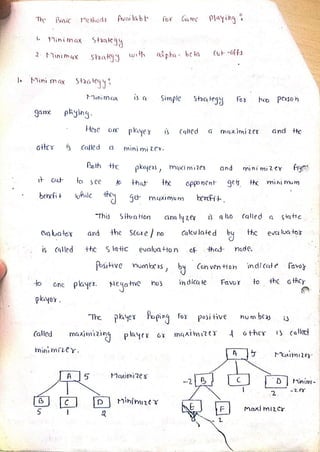 The Basic Methods Available for Game playing:
1. Minimax Strategy
2. Minimax Strategy with alpha-beta cut-offs
1. Minimax Strategy:
Minimax is a Simple Strategy for two person
game playing.
Here one player is called a maximizer and the
other is called a minimizer.
Both the players, maximizer and minimizer
it out to see that the opponent gets the minimum
benefit while they get maximum benefit.
This Situation analyzer is also called a static
evaluator and the Score/no calculated by the evaluator
is called the static evaluation of that node.
Positive numbers, by Convention indicate favor
to one player. Negative nos indicate Favor to the other
player.
The player hoping for positive numbers is
called maximizing player or maximizer & other is called
minimizer.
A 5 Maximizer
B C D Minimizer
5 1 2
A 5 Maximizer
-2 B C D Minimi-
1 2 -zer
E F Maximizer
2